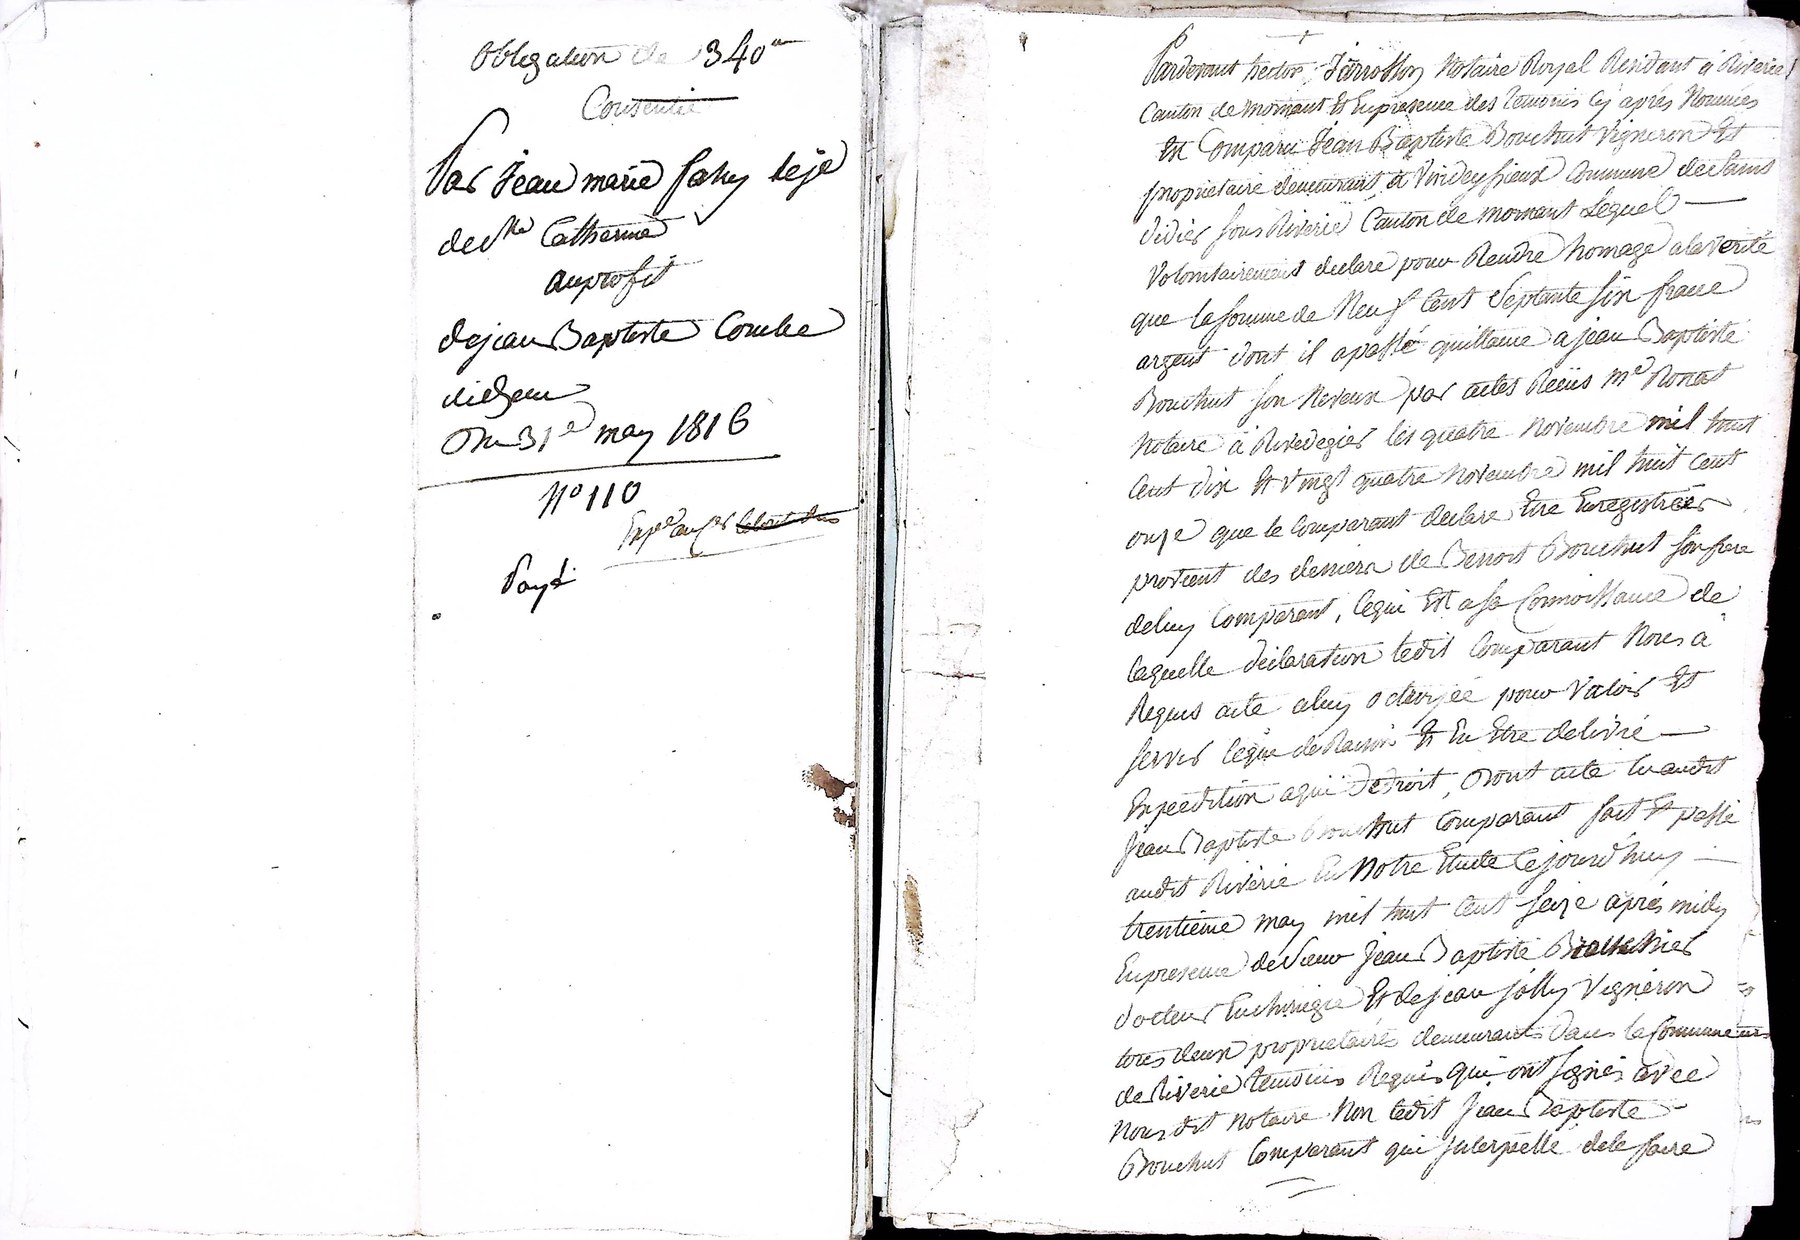 Obligation de 340 
Consentie
Par Jean marie
de Catherine
auprofit
dejean Baptiste Combe
Du 31e may 1816
N° 110
Payé
Pardevant hector notaire Royal Résidant à Riverie
Canton de mornant Et En presence des temoins Cy après Nommés
Est Comparu Jean Baptiste Bouchut vigneron Et
propriétaire demeurant à Commune de Saint
didier sous Riverie Canton de mornant Lequel
volontairement declare pour Rendre homage a la verité
que la somme de Neuf Cent Septante six franc
argent dont il a passé quittance a jean Baptiste
Bouchut son Neveux par actes Reçus Me
Notaire à Rivedegier les quatre Novembre mil huit
Cent dix Et vingt quatre Novembre mil huit Cent
onze que le Comparant declare Etre Enregistrées
provient des deniers de Benoit Bouchut son frere
deluy Comparant, Cequi Est a sa Connoissance de
laquelle declaration ledit Comparant Nous à
Requis acte aluy octroyée pour valoir Et
servir Ceque de Raison Et En Etre delivré
Expedition aqui De droit, Dont acte Lu audit
Jean Baptiste Bouchut Comparant fait Et passé
audit Riverie En Notre Etude Cejourd'huy
trentième may mil huit Cent seize après midy
En presence de sieur Jean Baptiste
docteur En chirurgie Et de jean jolly vigneron
tous deux propriétaires demeurants dans la Commune
de Riverie temoins Requis qui ont signés avec
Nous dit Notaire Non ledit Jean Baptiste
Bouchut Comparant qui Interpellé dele faire